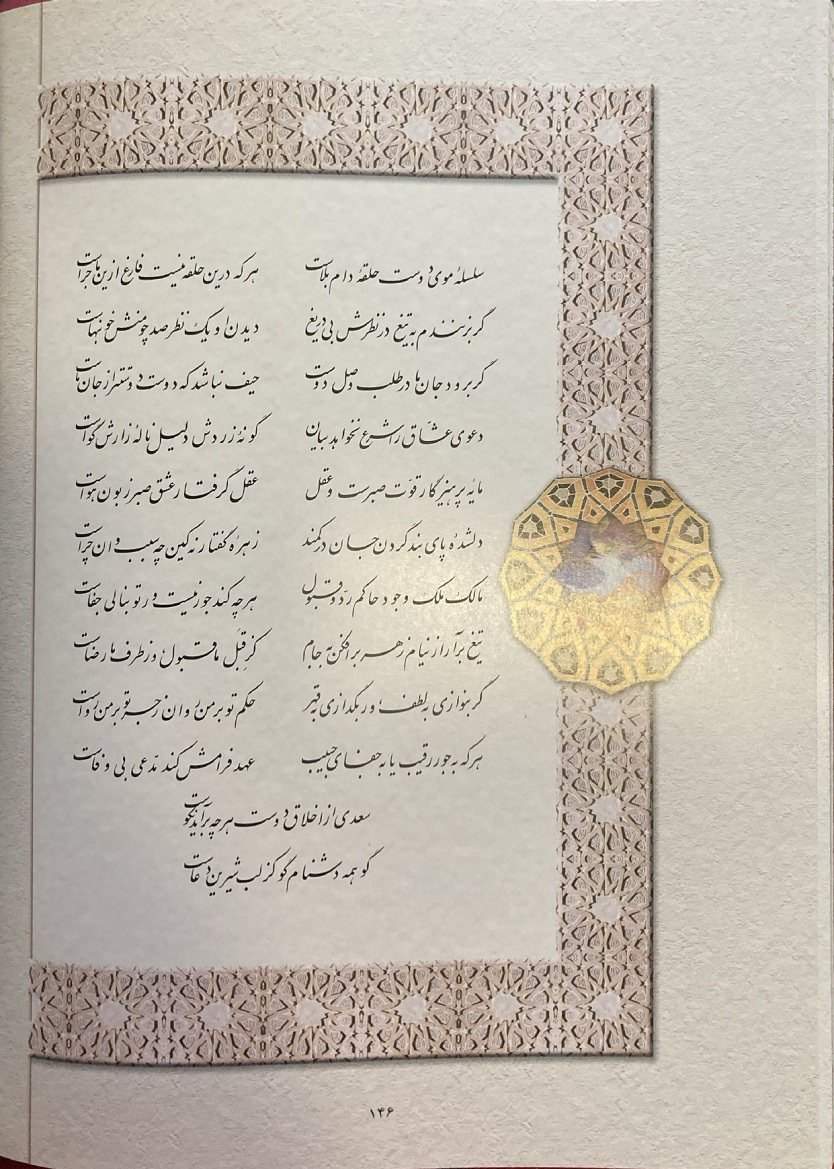 سلسلهٔ موی دوست حلقهٔ دام بلاست هرکه درین حلقه نیست فارغ ازین ماجراست
گر بزنندم به تیغ در نظرش بی‌دریغ دیدن او یک نظر صد چو منش خونبهاست
گر برود جان ما در طلب وصل دوست حیف نباشد که دوست دوستتر از جان ماست
دعوی عشاق را شرع نخواهد بیان گونهٔ زردش دلیل نالهٔ زارش گواست
مایهٔ پرهیزگار قوّت صبرست و عقل عقل گرفتار عشق صبر زبون هواست
دلشدهٔ پای بند گردن جان در کمند زهرهٔ گفتار نه کین چه سبب وان چراست
مالک ملک وجود حاکم ردّ و قبول هرچه کند جور نیست ور تو بنالی جفاست
تیغ برآر از نیام زهر برافکن به جام کز قبل ما قبول وز طرف ما رضاست
گر بنوازی به لطف ور بگدازی به قهر حکم تو بر من روان زجر تو بر من رواست
هرکه به جور رقیب یا به جفای حبیب عهد فرامش کند مدّعی بی وفاست
سعدی از اخلاق دوست هرچه برآید نکوست
گو همه دشنام گو کز لب شیرین دعاست
۱۴۶